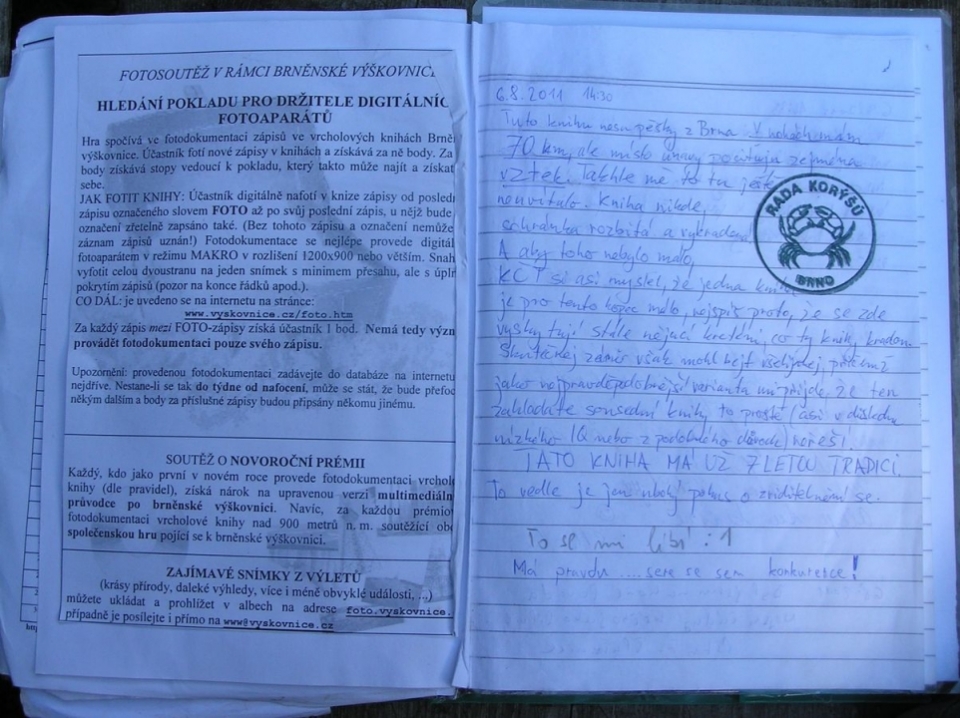 FOTOSOUTĚŽ V RÁMCI BRNĚNSKÉ VÝŠKOVNIC
HLEDÁNÍ POKLADU PRO DRŽITELE DIGITÁLNÍC
FOTOAPARÁTŮ
Hra spočívá ve fotodokumentaci zápisů ve vrcholových knihách Brně
výškovnice. Účastník fotí nové zápisy v knihách a získává za ně body. Za
body získává stopy vedoucí k pokladu, který takto může najít a získat
sebe.
JAK FOTIT KNIHY: Účastník digitálně nafotí v knize zápisy od posled
zápisu označeného slovem FOTO až po svůj poslední zápis, u nějž bude
označení zřetelně zapsáno také. (Bez tohoto zápisu a označení nemůže
záznam zápisů uznán!) Fotodokumentace se nejlépe provede digitál
fotoaparátem v režimu MAKRO v rozlišení 1200x900 nebo větším. Snah
vyfotit celou dvoustranu na jeden snímek s minimem přesahu, ale s úpln
pokrytím zápisů (pozor na konce řádků apod.).
CO DÁL: je uvedeno se na internetu na stránce:
www.vyskovnice.cz/foto.htm
Za každý zápis mezi FOTO-zápisy získá účastník 1 bod. Nemá tedy význ
provádět fotodokumentaci pouze svého zápisu.
Upozornění: provedenou fotodokumentaci zadávejte do databáze na internetu
nejdříve. Nestane-li se tak do týdne od nafocení, může se stát, že bude přefoc
někým dalším a body za příslušné zápisy budou připsány někomu jinému.
SOUTĚŽ O NOVOROČNÍ PRÉMII
Každý, kdo jako první v novém roce provede fotodokumentaci vrchol
knihy (dle pravidel), získá nárok na upravenou verzi multimediáln
průvodce po brněnské výškovnici. Navíc, za každou prémio
fotodokumentaci vrcholové knihy nad 900 metrů n. m. soutěžící obd
společenskou hru pojící se k brněnské výškovnici.
ZAJÍMAVÉ SNÍMKY Z VÝLETŮ
(krásy přírody, daleké výhledy, více i méně obvyklé události, ...)
můžete ukládat a prohlížet v albech na adrese foto.vyskovnice.
případně je posílejte i přímo na www@vyskovnice.cz
6.8.2011 14:30
Tuto knihu nesu pěšky z Brna. V nohách mám
70 km, ale místo únavy pociťuju zejména
vztek. Takhle mě to tu ještě
neuvítalo. Kniha nikde,
schránka rozbitá a vykradená
A aby toho nebylo málo,
KČT si asi myslel, že jedna kniha
je pro tento kopec málo, nejspíš proto, že se zde
vyskytují stále nějací kreténi, co ty knihy kradou.
Skutečnej záměr však mohl bejt všelijakej, přičemž
jako nejpravděpodobnější varianta mi přijde, že ten
zakladatel sousední knihy to prostě (asi v důsledku
nízkého IQ nebo z podobného důvodu) neřeší!
TATO KNIHA MÁ UŽ 7 LETOU TRADICI.
To vedle je jen ubohý pokus o zviditelnění se.
To se mi líbí : 1
Má pravdu .... sere se sem konkurence!
RADA KORÝŠŮ
BRNO